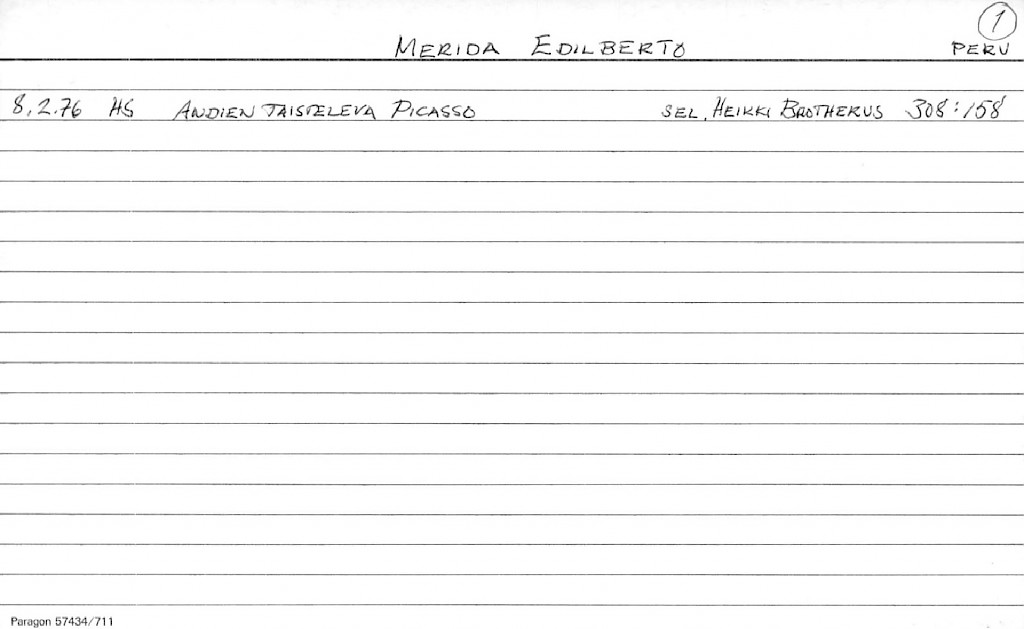 1
MERIDA EDILBERTO PERU
8.2.76 HS ANDIEN TAISTELEVA PICASSO SEL. HEIKKI BROTHERUS 308:158
Paragon 57434/711